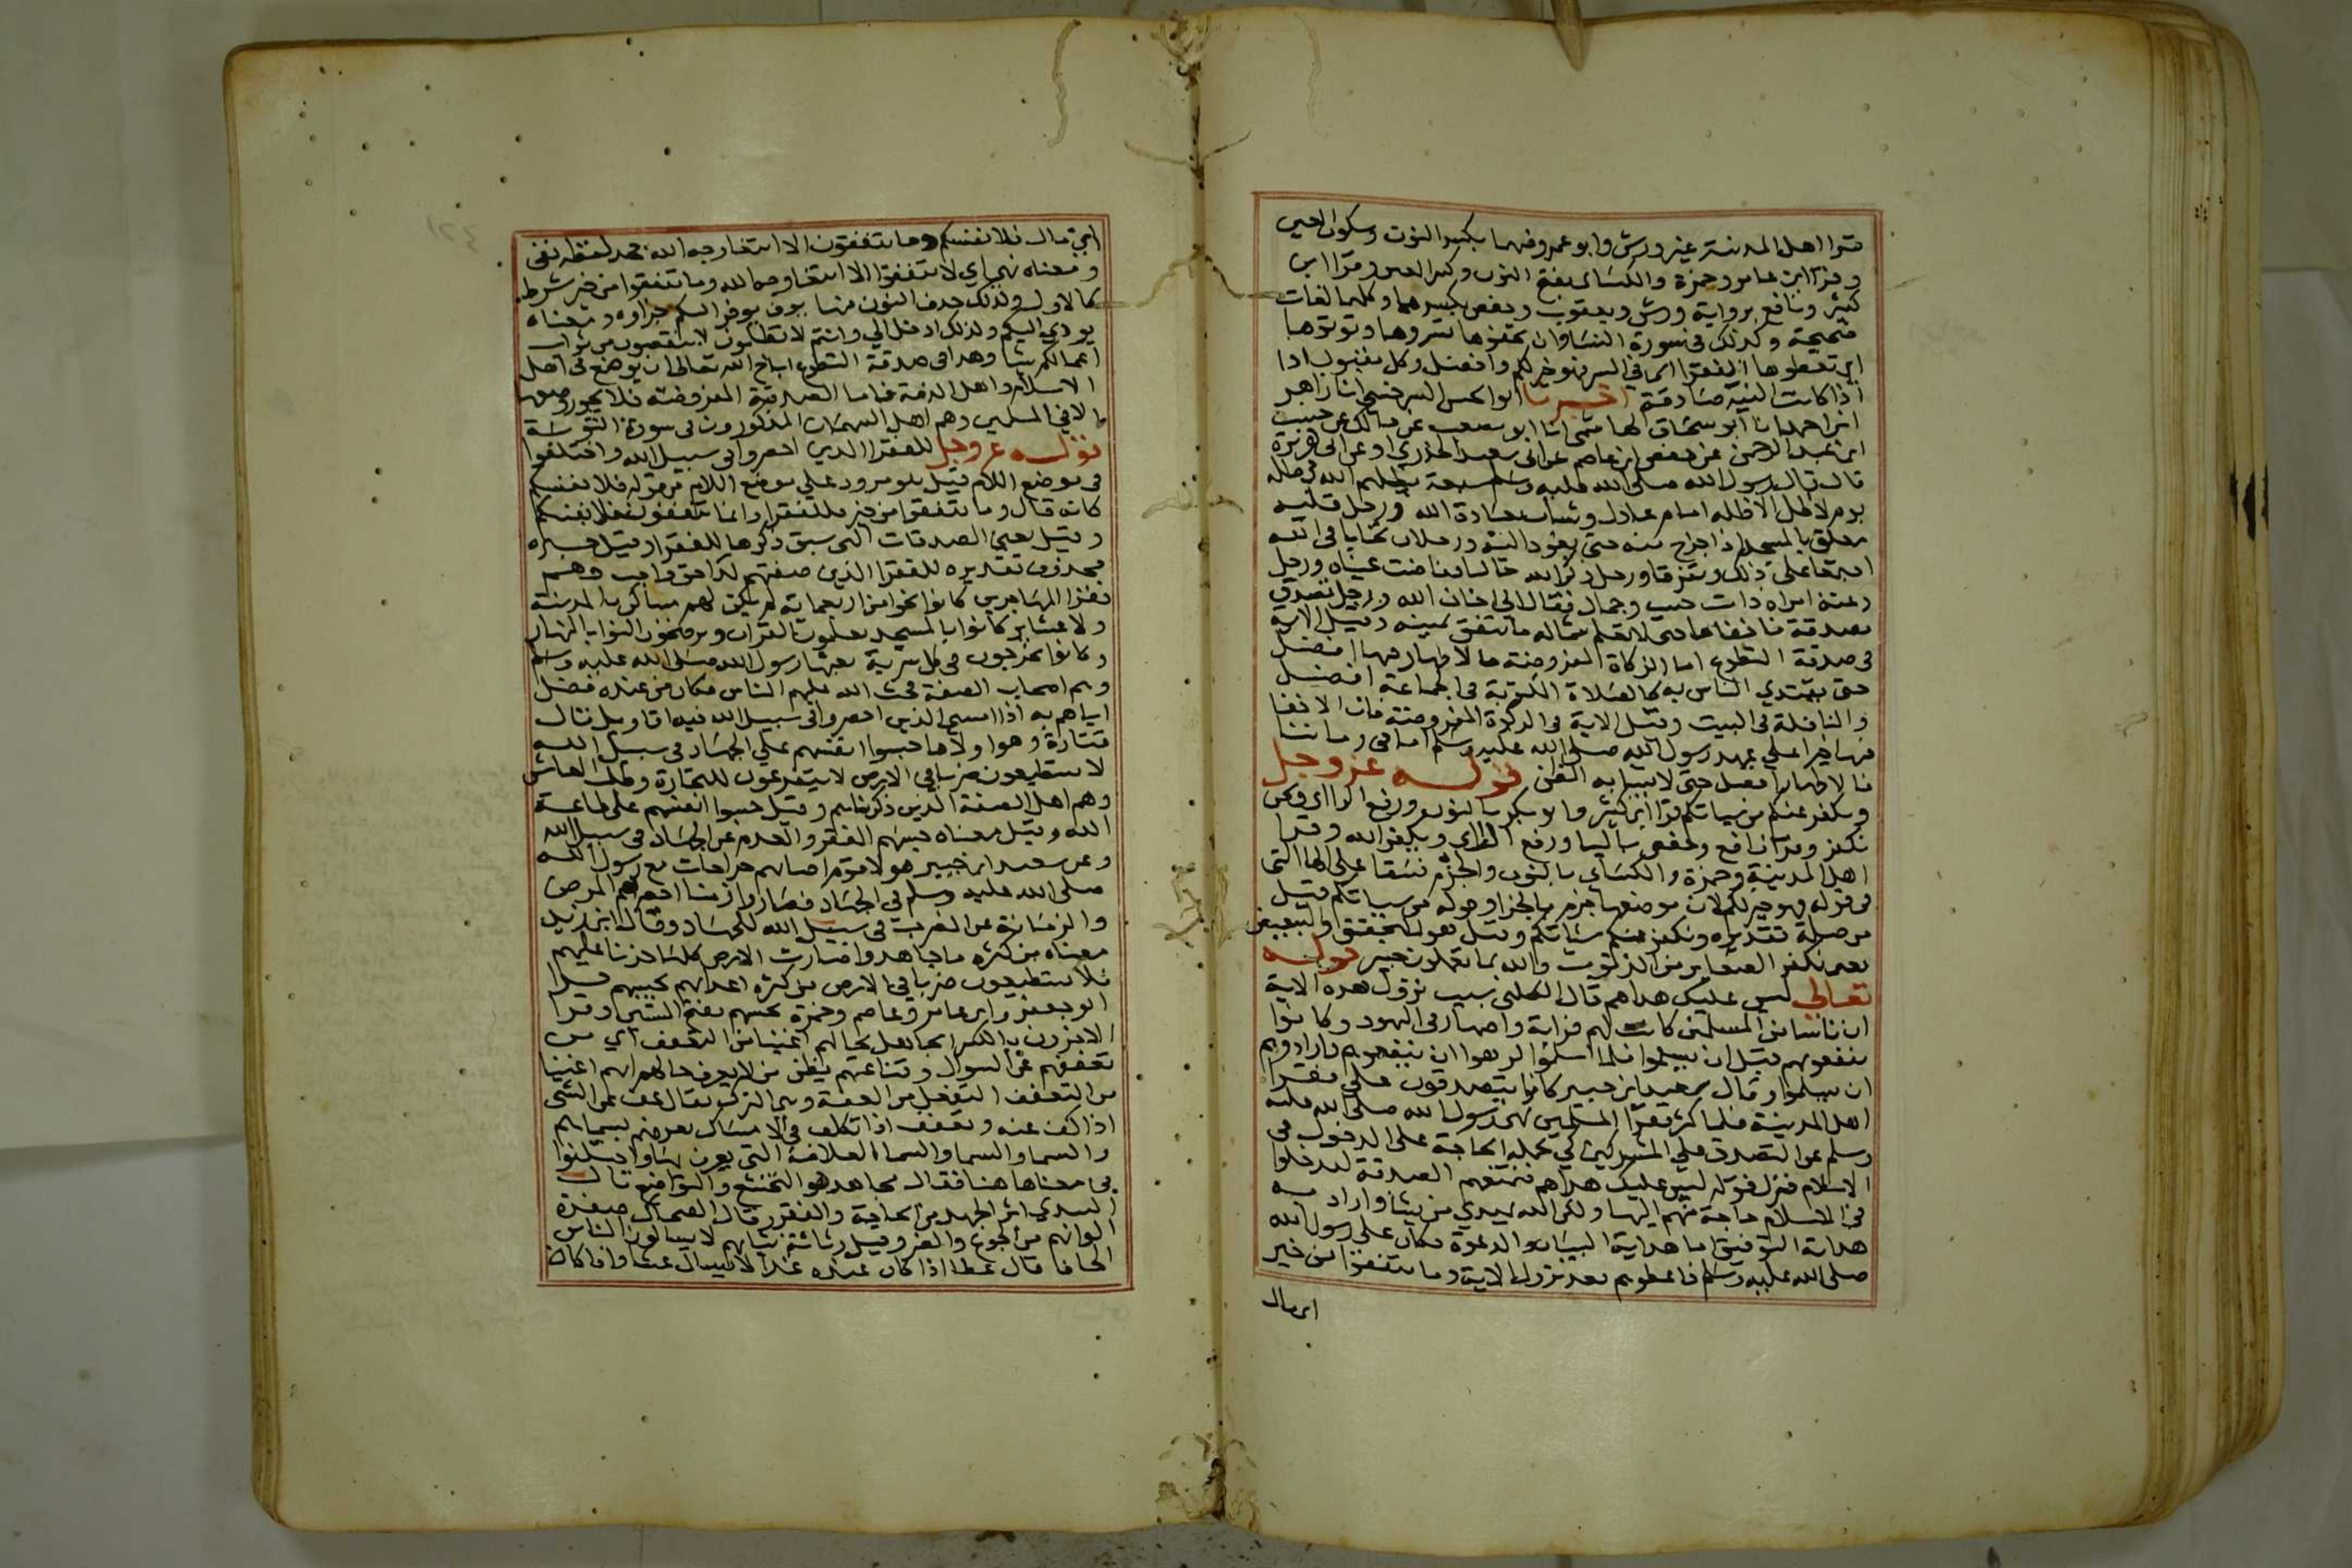 قرا اهل المدينة غير ورش وابو عمرو فنعما بكسر النون وسكون العين
وقرا ابن عامر وحمزة والكساى بفتح النون وكسر العين وقرا ابن
كثير ونافع برواية ورش ويعقوب وحفص بكسرهما وكلها لغات
صحيحة وكذلك في سورة النسا وان تخفوها تسروها وتوتوها
اي تعطوها الفقرا اي في السر فهو خير لكم وافضل وكل مقبول اذا
اذا كانت النية صادقة اخبرنا ابو الحسن السرخسي انا زاهر
ابن احمد انا ابو اسحاق الهاشمي انا ابو مصعب عن مالك عن حبيب
ابن عبد الرحمن عن حفص ابن عاصم عن ابي سعيد الخدري او عن ابي هريرة
قال قال رسول الله صلى الله عليه وسلم سبعة يظلهم الله في ظله
يوم لا ظل الا ظله امام عادل وشاب بعبادة الله ورجل قلبه
معلق بالمسجد اذا خرج منه حتى يعود اليه ورجلان تحابا في الله
اجتمعا على ذلك وتفرقا ورجل ذكر الله خاليا ففاضت عيناه ورجل
دعته امراة ذات حسب وجمال فقال اني اخاف الله ورجل تصدق
بصدقة فاخفاها حتى لا تعلم شماله ما تنفق يمينه وقيل الاية
في صدقة التطوع اما الزكاة المفروضة فالاظهار فيها افضل
حتى يقتدي الناس به كالصلاة المكتوبة في الجماعة افضل
والنافلة في البيت وقيل الاية في الزكوة المفروضة كان الاخفا
فيها خيرا على عهد رسول الله صلى الله عليه وسلم اما في زماننا
فالاظهار افضل حتى لا يسا به الظن قوله عز وجل
ويكفر عنكم من سياتكم قرا ابن كثير وابو بكر بالنون ورفع الرا اي ونحن
نكفر وقرا ابن عامر وحفص باليا ورفع الراي ويكفر الله وقرا
اهل المدينة وحمزة والكساي بالنون والجزم نسقا على الفا التي
في قوله فهو خير لكم لان موضعها جزم بالجزا وقوله من سياتكم قيل
من صلة تقديره ونكفر عنكم سياتكم وقيل هو للتحقيق والتبعيض
يعني نكفر الصغاير من الذنوب والله بما تعملون خبير قوله
تعالى ليس عليك هداهم قال الكلبي سبب نزول هذه الاية
ان ناسا من المسلمين كانت لهم قرابة واصهار في اليهود وكانوا
ينفعونهم قبل ان يسلموا فلما اسلموا كرهوا ان ينفعوهم وارادوهم
ان يسلموا وقال سعيد ابن جبير كانوا يتصدقون على فقرا
اهل المدينة فلما كثر فقرا المسلمين نهى رسول الله صلى الله عليه
وسلم عن التصدق على المشركين كي تحملهم الحاجة على الدخول في
الاسلام فنزل قوله ليس عليك هداهم فتمنعهم الصدقة ليدخلوا
في الاسلام حاجة منهم اليها ولكن الله يهدي من يشا واراد به
هداية التوفيق اما هداية البيان والدعوة فكان على رسول الله
صلى الله عليه وسلم فاعطوهم بعد نزول الاية وما تنفقوا من خير
اي مال
اي مال فلانفسكم وما تنفقون الا ابتغا وجه الله جحد لفظه نفى
ومعناه نهى اي لا تنفقوا الا ابتغا وجه الله وما تنفقوا من خير شرط
كالاول ولذلك حذف النون منها يوف يوفر اليكم جزاوه ومعناه
يودي اليكم ولذلك ادخل الي وانتم لا تظلمون لا تنقصون من ثواب
اعمالكم شيا وهذا في صدقة التطوع اباح الله تعالى ان يوضع في اهل
الاسلام واهل الذمة فاما الصدقة المفروضة فلا يجوز وضعها
الا في المسلمين وهم اهل السهمان المذكورون في سورة التوبة
قوله عز وجل للفقرا الذين احصروا في سبيل الله واختلفوا
في موضع اللام قيل هو مردود على موضع اللام من قوله فلانفسكم
كانه قال وما تنفقوا من خير فللفقرا وانما تنفقون لانفسكم
وقيل يعني الصدقات التي سبق ذكرها للفقرا وقيل خبره
محذوف تقديره للفقرا الذين صفتهم كذا حق واجب وهم
فقرا المهاجرين كانوا نحوا من اربعماية لم يكن لهم مساكن بالمدينة
ولا عشاير كانوا بالمسجد يتعلمون القران ويرضخون النوا بالنهار
وكانوا يخرجون في كل سرية يبعثها رسول الله صلى الله عليه وسلم
وهم اصحاب الصفة فحث الله عليهم الناس فكان من عنده فضل
اياهم به اذا امسى الذين احصروا في سبيل الله فيه اقاويل قال
قتادة وهو اولاها حبسوا انفسهم على الجهاد في سبيل الله
لا يستطيعون ضربا في الارض لا يتفرغون للتجارة وطلب المعاش
وهم اهل الصفة الذين ذكرناهم وقيل حبسوا انفسهم على طاعة
الله وقيل معناه حبسهم الفقر والعدم عن الجهاد في سبيل الله
وعن سعيد ابن جبير هولا قوم اصابهم جراحات مع رسول الله
صلى الله عليه وسلم في الجهاد فصاروا زمنا احصرهم المرض
والزمانة عن الضرب في سبيل الله للجهاد وقال ابن زيد
معناه من كثرة ما جاهدوا صارت الارض كلها حربا عليهم
فلا يستطيعون ضربا في الارض من كثرة اعدايهم يحسبهم قرا
ابو جعفر وابن عامر وعاصم وحمزة يحسبهم بفتح السين وقرا
الاخرون بالكسر الجاهل بحالهم اغنيا من التعفف اي من
تعففهم عن السوال وقناعتهم يظن من لا يعرف حالهم انهم اغنيا
من التعفف التفعل من العفة وهي الترك يقال عف عن الشي
اذا كف عنه وتعفف اذا تكلف في الامساك تعرفهم بسيماهم
والسيما والسيميا والسمة العلامة التي يعرف بها واختلفوا
في معناها هنا فقال مجاهد هو التخشع والتواضع قال
السدي اثر الجهد من الحاجة والفقر وقال الضحاك صفرة
الوانهم من الجوع والضر وقيل رثاثة ثيابهم لا يسالون الناس
الحافا قال عطا اذا كان عنده غدا لا يسال عشا واذا كان